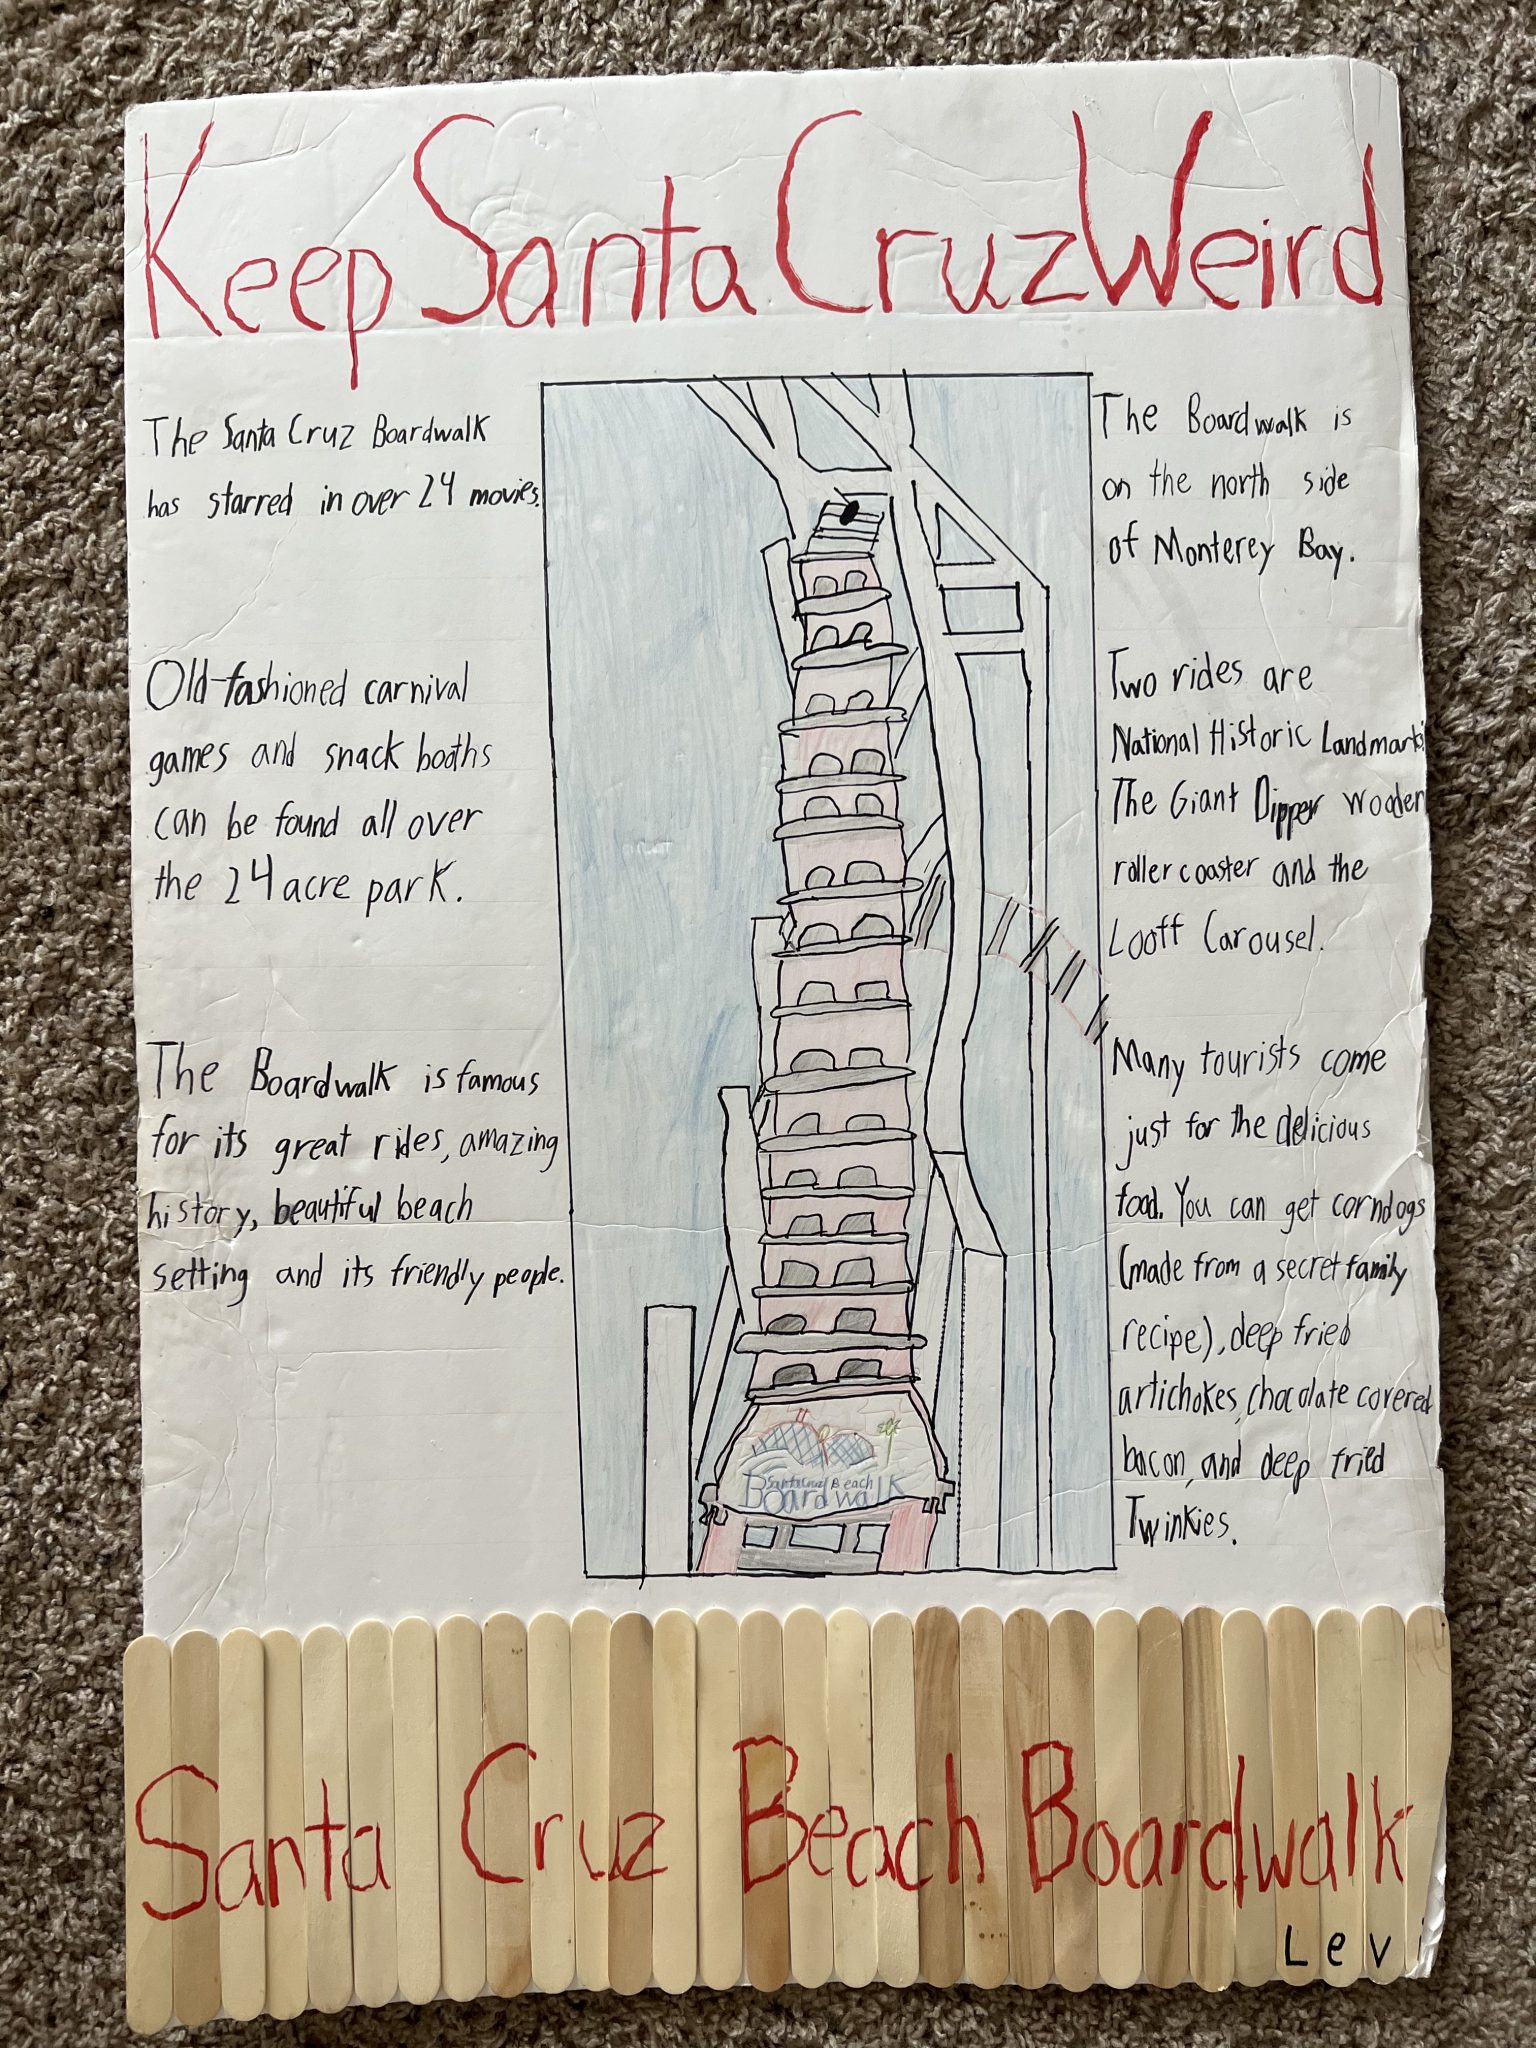 Keep Santa Cruz Weird
The Santa Cruz Boardwalk
has starred in over 24 movies.
Old-fashioned carnival
games and snack booths
can be found all over
the 24 acre park.
The Boardwalk is famous
for its great rides, amazing
history, beautiful beach
setting and its friendly people.
The Boardwalk is
on the north side
of Monterey Bay.
Two rides are
National Historic Landmarks
The Giant Dipper wooden
roller coaster and the
Looff Carousel.
Many tourists come
just for the delicious
food. You can get corndogs
(made from a secret family
recipe), deep fried
artichokes, chocolate covered
bacon, and deep fried
Twinkies.
Santa Cruz Beach
Boardwalk
Santa Cruz Beach Boardwalk
Levi